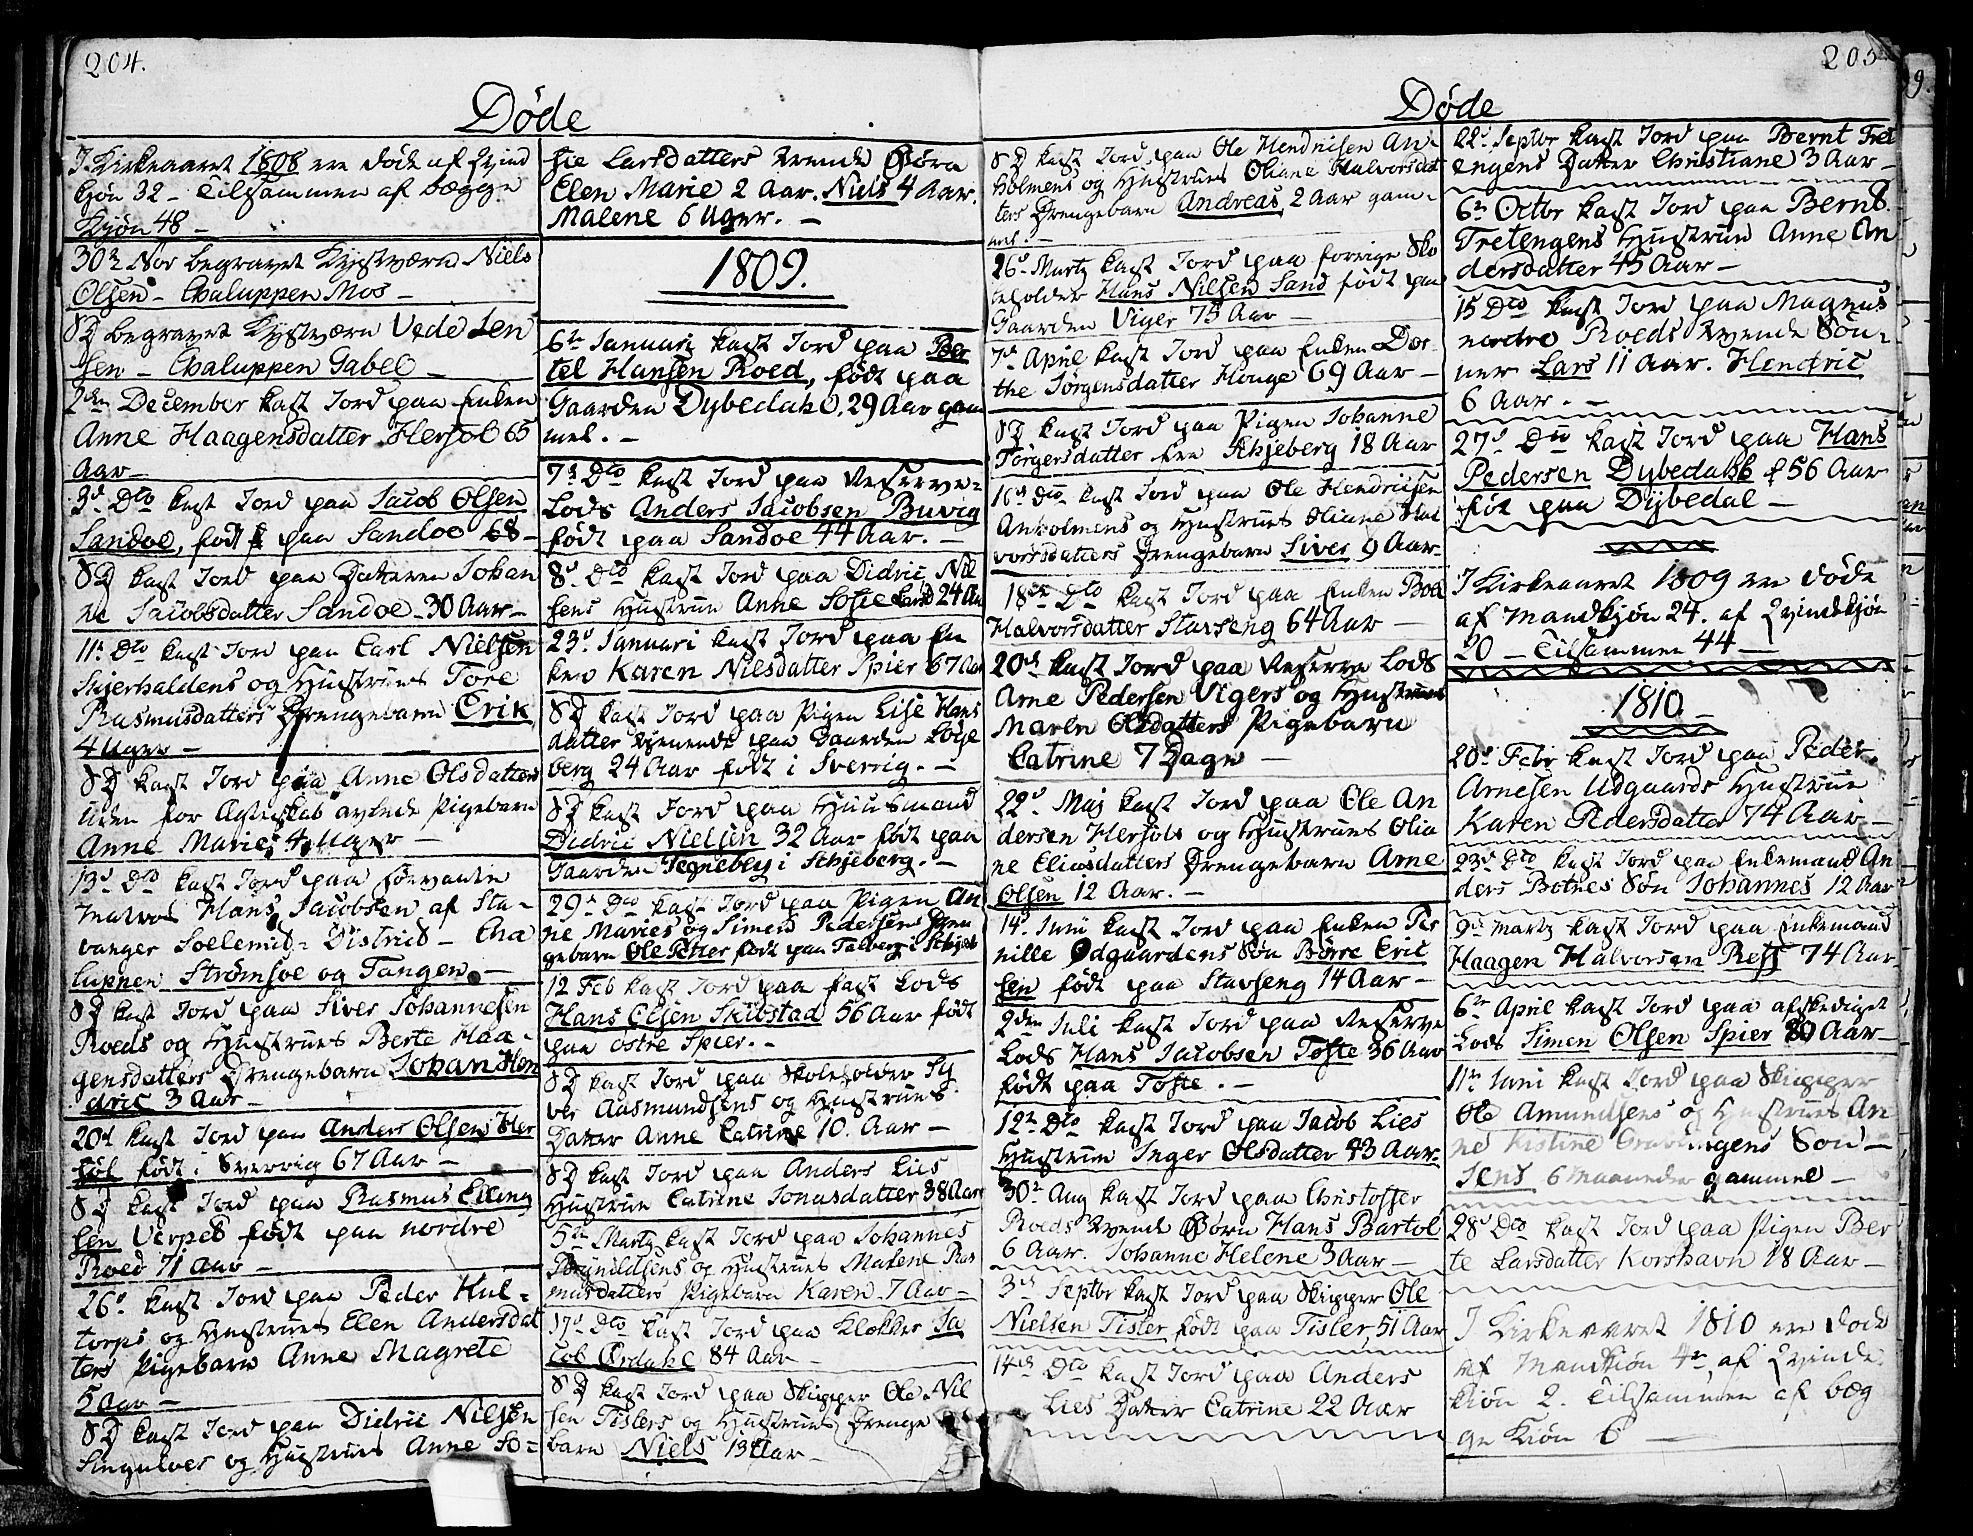 204.
Døde
I Kirkeaaret 1808 ere døde af Qvind
kjøn 32 - Tilsammen af begge
Kjøn 48 -
30te Nov begravet Kystværn Niels
Olsen - Chaluppen Mos -
S D begravet Kystværn Vede Jen
sen - Chaluppen Gabel -
2den December kast Jord paa Enken
Anne Haagensdatter Hersøl 65
Aar -
3d Dto kast Jord paa Jacob Olsen
Sandøe, født paa Sandøe 68 -
S D kast Jord paa Datteren Johan
ne Jacobsdatter Sandøe - 30 Aar -
11te Dto kast Jord paa Carl Nielsen
Skjerhaldens og Hustrues Tore
Rasmusdatters Drengebarn Erik
4 Uger -
S D kast Jord paa Anne Olsdatters
Uden for Ægteskab avlede Pigebarn
Anne Marie, 4 Uger -
13d Dto kast Jord paa
Matros Hans Jacobsen af Sta-
vanger District - Cha
luppen Strømsøe og Tangen -
S D kast Jord paa Siver Johannesen
Roeds og Hustrues Berte Haa-
gensdatters Drengebarn Johan Hen
dric 3 Aar -
20d kast Jord paa Anders Olsen Her
søl født i Sverrig 67 Aar -
S D kast Jord paa Rasmus Elling
sen Verpet født paa nordre
Roed 71 Aar -
26d kast Jord paa Peder Hul-
torps og Hustrues Elen Andersdat
ters Pigebarn Anne Magrete
5 Aar -
S D kast Jord paa Didric Nilsen
Singeløes og Hustrues Anne So-
fie Larsdatters trende Børn
Elen Marie 2 Aar. Niels 4 Aar.
Malene 6 Uger. -
1809.
6te Januari kast Jord paa Ber
tel Hansen Roed, født paa
Gaarden Dybedahl, 29 Aar gam
mel. -
7d Dto kast Jord paa Reserve-
Lods Anders Jacobsen Buvig
født paa Sandøe 44 Aar. -
8d Dto kast Jord paa Didric Nil
sens Hustrue Anne Sofie 24 Aar
23d Januari kast Jord paa En
ken Karen Nilsdatter Spier 67 Aar
S D kast Jord paa Pigen Lise Hans
datter tjenende paa Gaarden Løge
berg 24 Aar født i Sverrig. -
S D kast Jord paa Huusmand
Didric Nielsen 32 Aar født paa
Gaarden Tegneby i Schjeberg. -
29de Dto kast Jord paa Pigen An
ne Maries og Simen Pedersens Dren
gebarn Ole Peter født paa Talberg i Schjeb
12 Feb kast Jord paa fast Lods
Hans Olsen Skibstad 56 Aar født
paa østre Spier. -
S D kast Jord paa Skoleholder Sy
ver Aasmundsens og Hustrues
Datter Anne Catrine 10. Aar -
S D kast Jord paa Anders Lies
Hustrue Catrine Jonasdatter 38 Aar
5te Martz kast Jord paa Johannes
og Hustrues Malene Ras
musdatters Pigebarn Karen - 7 Aar -
17d Dto kast Jord paa Klokker Ja
cob Ørdahl 84 Aar -
S D kast Jord paa Skipper Ole Nil
sen Tislers og Hustrues Drenge
barn Niels 13 Aar -
205
Døde
S D kast Jord paa Ole Hendricsen An-
holmens og Hustrues Oliane Halvorsdat
ters Drengebarn Andreas, 2 Aar gam-
mel. -
26d Martz kast Jord paa forrige Sko
leholder Hans Nilsen Sand født paa
Gaarden Viger 75 Aar -
7d April kast Jord paa Enken Dor-
the Jørgensdatter Houge 69 Aar -
S D kast Jord paa Pigen Johanne
Torgersdatter fra Schjeberg 18 Aar
16d Dto kast Jord paa Ole Hendricsen
Anholmens og Hustrues Oliane Hal
vorsdatters Drengebarn Siver 9 Aar
18de Dto kast Jord paa Enken Boel
Halvorsdatter Stavseng 64 Aar -
20de kast Jord paa Reserve Lods
Arne Pedersen Vigers og Hustrues
Maren Olsdatters Pigebarn
Catrine 7 Dage -
22d Maj kast Jord paa Ole An
dersen Hersøls og Hustrues Olia
ne Eliasdatters Drengebarn Arne
Olsen 12 Aar. -
14d Juni kast Jord paa Enken Per
nille Ødgaardens Søn Børre Eric
sen født paa Stavseng 14 Aar -
2den Juli kast Jord paa Reserve
Lods Hans Jacobsen Tofte 36 Aar
født paa Tofte. -
12te Dto kast Jord paa Jacob Lies
Hustrue Inger Olsdatter 43 Aar.
30te Aug kast Jord paa Christoffer
Roeds tvende Børn Hans Bartol
6 Aar. Johanne Helene 3 Aar -
3de Septbr kast Jord paa Skipper Ole
Nielsen Tisler født paa Tisler, 51 Aar
14de Dto kast Jord paa Anders
Lies Datter Catrine 22 Aar
22d Septbr kast Jord paa Bernt Tret
engens Datter Christiane 3 Aar -
6te Octbr kast Jord paa Bernt
Tretengens Hustrue Anne An
dersdatter 45 Aar -
15 Dto kast Jord paa Magnus
nordre Roeds tvende Søn-
ner Lars 11 Aar. Hendric
6 Aar. -
27d Dto kast Jord paa Hans
Pedersen Dybedahl 56 Aar
føt paa Dybedal -
I Kirkeaaret 1809 ere døde
af Mandkjøn 24. af Qvindekjøn
20 - Tilsammen 44 -
1810
20d Febr kast Jord paa Peder
Arnesen Udgaards Hustrue
Karen Pedersdatter 74 Aar -
23d Dto kast Jord paa Enkemand An
ders Botnes Søn Johannes 12 Aar
9de Martz kast Jord paa Enkemand
Haagen Halvorsen Reff 74 Aar.
6te April kast Jord paa afskediget
Lods Simen Olsen Spier 80 Aar -
11te Juni kast Jord paa Skipper
Ole Amundsens og Hustrues An
ne Kistine Gravningens Søn -
Jens 6 Maaneder gammel -
28d Dto kast Jord paa Pigen Ber
te Larsdatter Korshavn 18 Aar -
I Kirkeaaret 1810 ere døde
af Mandkiøn 4re af Qvinde
kiøn 2. Tilsammen af beg
ge Kiøn 6 -